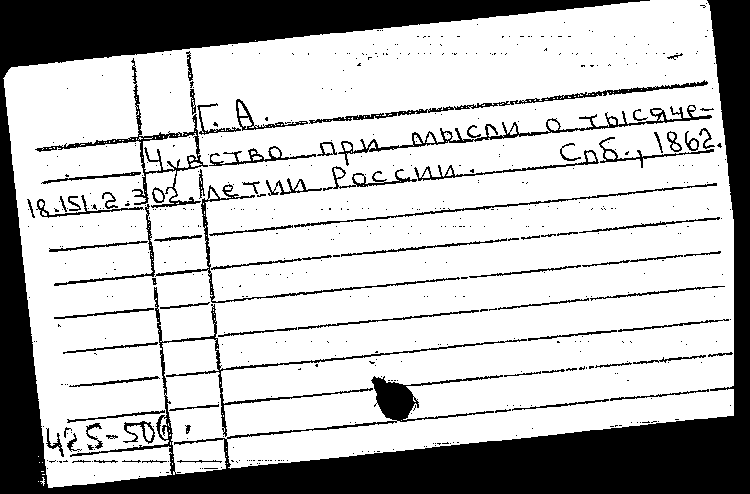 Г. А.
Чувство при мысли о тысяче-
18.151.2.302. летии России. Спб., 1862.
425-506.